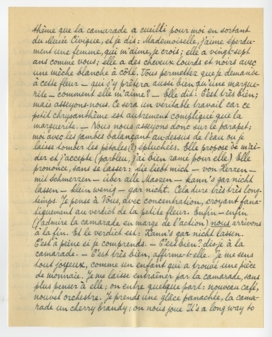 thème que la camarade a cueilli pour moi en sortant
du Musée, et je dis : Mademoiselle, j'aime éperdu-
ment une femme, qui m'aime, je crois ; elle a vingt-sept
ans comme vous ; elle a des cheveux lourds et noirs avec
une mèche blanche à côté. Vous permettez que je demande
à cette fleur — qui s'y prêtera aussi bien qu'une margue-
rite — comment elle m'aime ? — Elle dit : C'est très bien ;
mais asseyons-nous. Ce sera un véritable travail car ce
petit chrysanthème est autrement compliqué que la
marguerite. — Nous nous asseyons donc sur le parapet,
nos avec les jambes balançant au-dessus de l'eau où je
laisse tomber les pétales épluchées. Elle propose de m'ai-
der et j'accepte (parbleu, j'ai bien rance pour elle) elle
prononce, sans les casser : sie liebt mich — von Herzen —
mit Schmerzen — über alle Massen — kann's gar nicht
lassen — klein wenig — gar nicht. Cela dure très très long-
temps. Je pense à Vous, avec concentration, croyant fana-
tiquement au verdict de la petite fleur. Enfin — enfin
(j'admire la camarade en marge de l'action) nous arrivons
à la fin. Et le verdict est : Kann's gar nicht lassen.
C'est à peine si je comprends. — C'est bien ? dis-je à la
camarade. — C'est très bien, affirme-t-elle. Je me sens
tout joyeux, comme un enfant qui a trouvé une pièce
de monnaie. Je me laisse entraîner par la camarade, sans
plus penser à elle ; on entre quelque part : nouveau café,
nouvel orchestre. Je prends une glace panachée, la cama-
rade un cherry brandy ; on nous joue It's a long way to